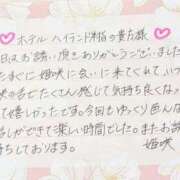 ホテル ハイランド 様の貴方様
日はお誘い頂きありがとうございました
たずに姫咲に会いに来てくれて、いつ
咲の舌でたくさん感じて気持ち良くなっ
って嬉しかったです。今回もゆっくり色んな
しができて楽しい時間でした。またお誘
待ちしております。
姫咲